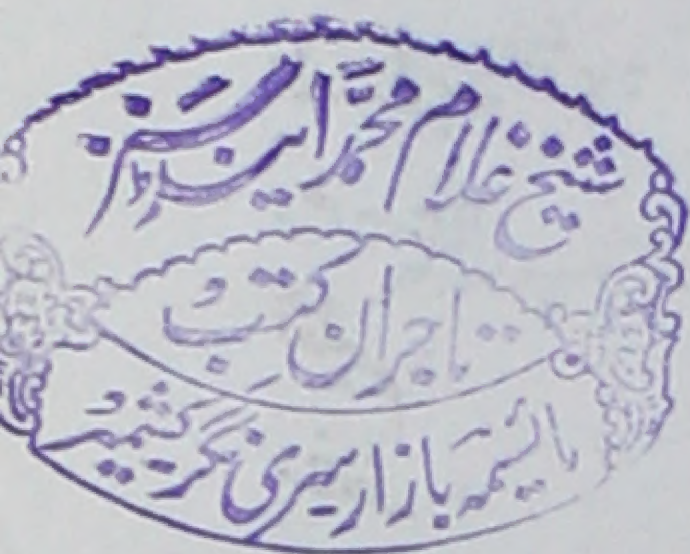 شیخ غلام محمّد اینڈ سنز
تاجران کتب
مائیسمہ بازار سری نگر کشمیر